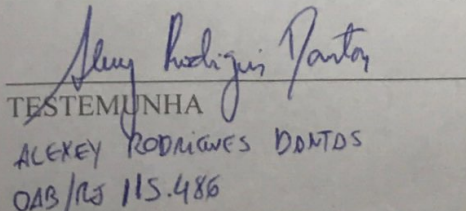 Alexey Rodrigues Dantas
TESTEMUNHA
ALEXEY RODRIGUES DANTAS
OAB/RJ 115.486